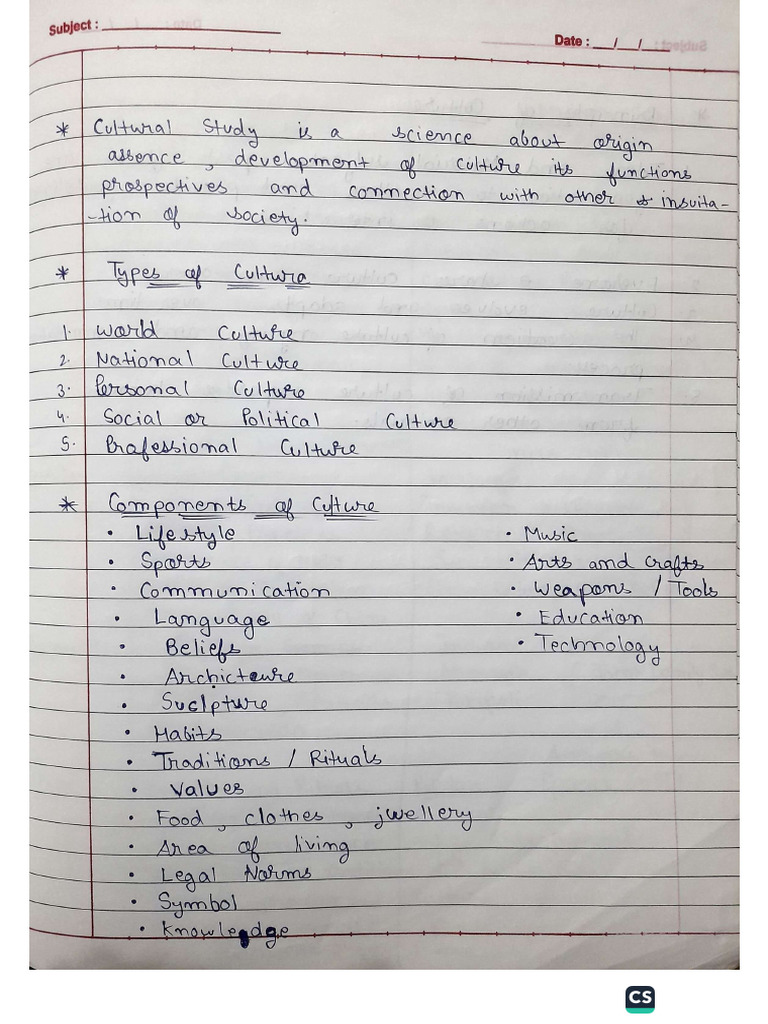 Subject :
Date : __/__/__
* Cultural Study is a science about origin
assence, development of culture its functions
prospectives and connection with other insuita-
-tion of society.
* Types of Cultura
1. World Culture
2. National Culture
3. Personal Culture
4. Social or Political Culture
5. Professional Culture
* Components of Culture
• Lifestyle
• Music
• Sports
• Arts and crafts
• Communication
• Weapons / Tools
• Language
• Education
• Beliefs
• Technology
• Archicteure
• Suclpture
• Habits
• Traditions / Rituals
• Values
• Food, clothes, jwellery
• Area of living
• Legal Norms
• Symbol
• Knowledge
CS